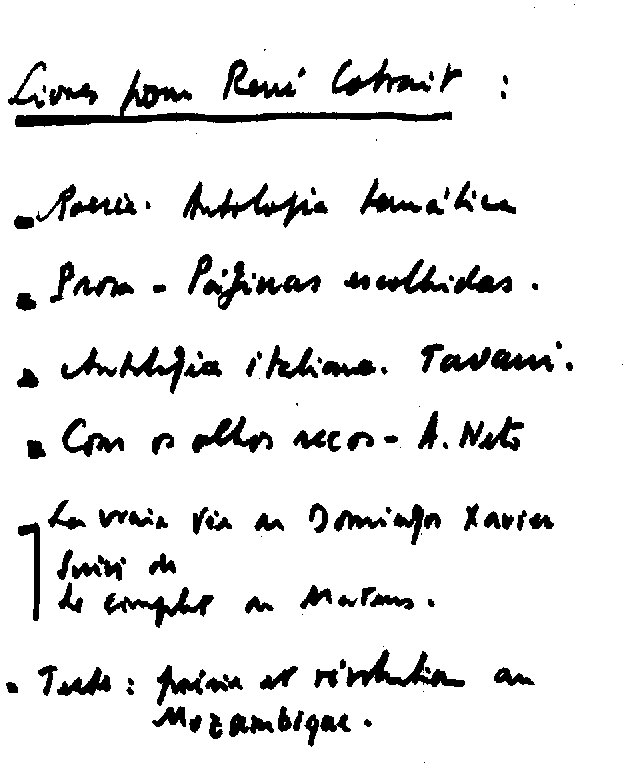 Livres pour René Cotrait :
- Poesia. Antologia temática
- Prosa - Páginas escolhidas.
- Antologia italiana. Tavani.
- Com os olhos secos - A. Neto
- La vraie vie de Domingos Xavier
Suivi de
Le complet de Mateus.
- Texte : poésie et révolution au
Mozambique.